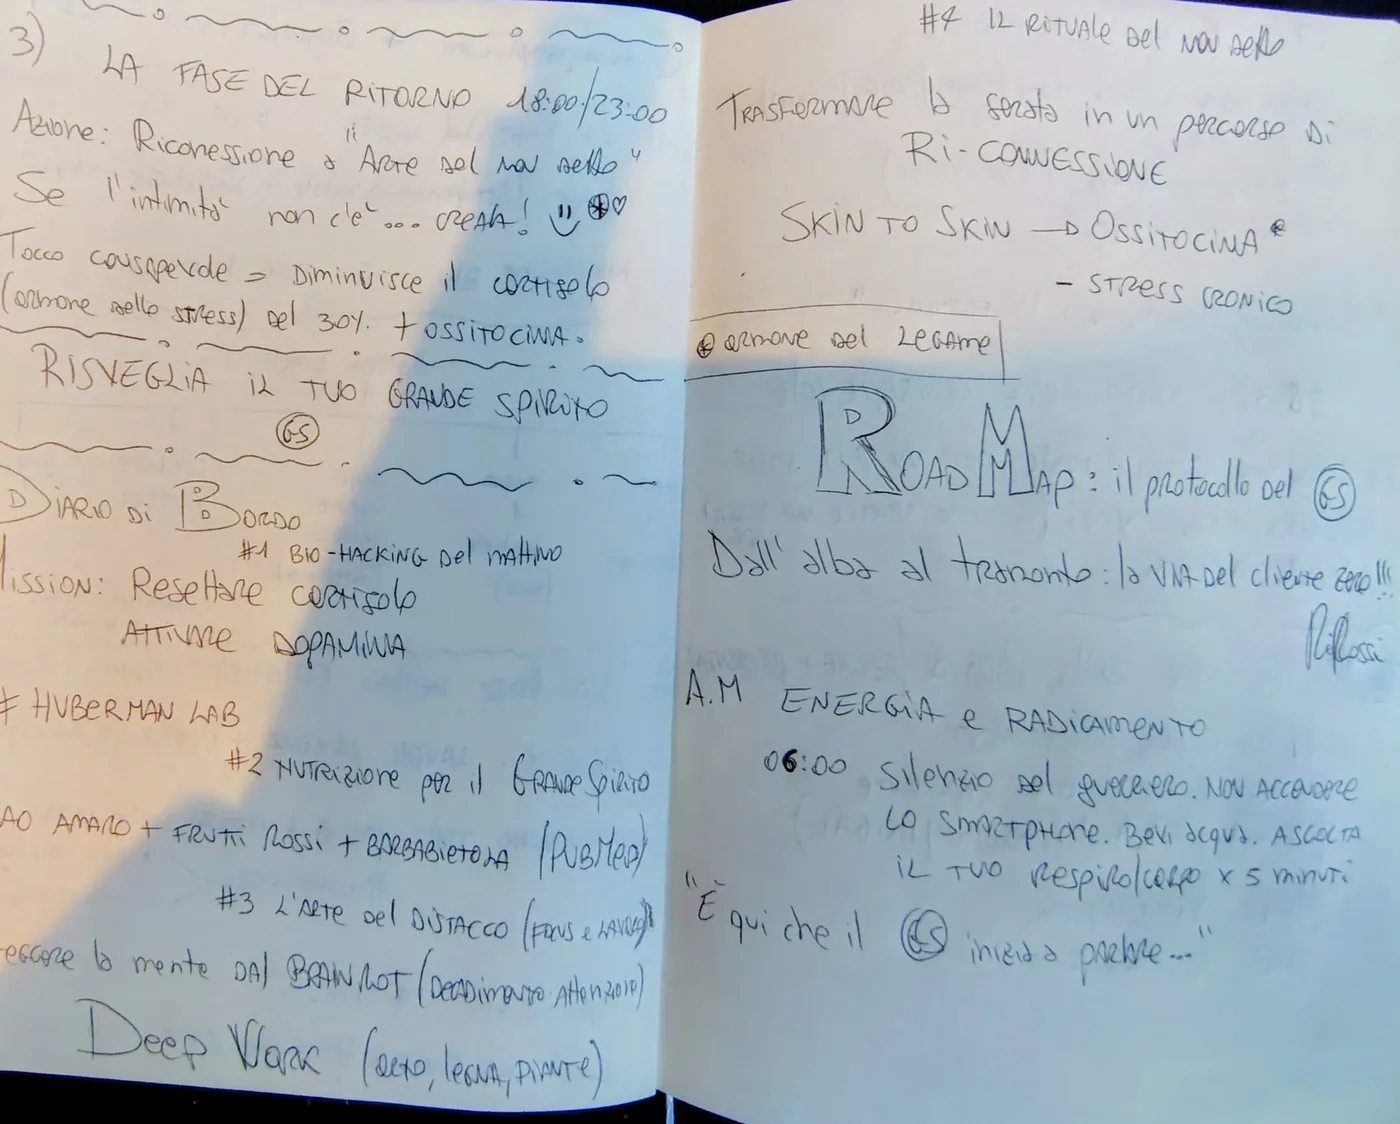 3)
LA FASE DEL RITORNO 18:00/23:00
Azione: Riconessione a "Arte del non detto"
Se l'intimità non c'è... creala!
Tocco consapevole = Diminuisce il cortisolo
(ormone dello stress) del 30%. + OSSITOCINA.
RISVEGLIA IL TUO GRANDE SPIRITO
GS
DIARIO Di BORDO
#1 BIO-HACKING Del MATTINO
Mission: Resettare cortisolo
ATTIVARE DOPAMINA
# HUBERMAN LAB
#2 NUTRIZIONE per il GRANDE SPIRITO
AO AMARO + FRUTTI ROSSI + BARBABIETOLA (PUBMED)
#3 L'ARTE del DISTACCO (FOCUS e LAVORO)
eggere la mente DAL BRAIN ROT (DECADIMENTO ATTENZIONE)
Deep Work (orto, legna, piante)
#4 IL RITUALE del NON detto
TRASFORMARE la serata in un percorso Di
Ri-CONNESSIONE
SKIN TO SKIN → OSSITOCINA
- STRESS CRONICO
ormone del LEGAME
ROAD MAP: il protocollo del GS
Dall'alba al tramonto: la VIA Del cliente zero!!!
RiRossi
A.M ENERGIA e RADICAMENTO
06:00 Silenzio del guerriero. NON ACCENDERE
LO SMARTPHONE. Bevi acqua. ASCOLTA
IL TUO RESPIRO/corpo x 5 minuti
"È qui che il GS inizia a parlare..."